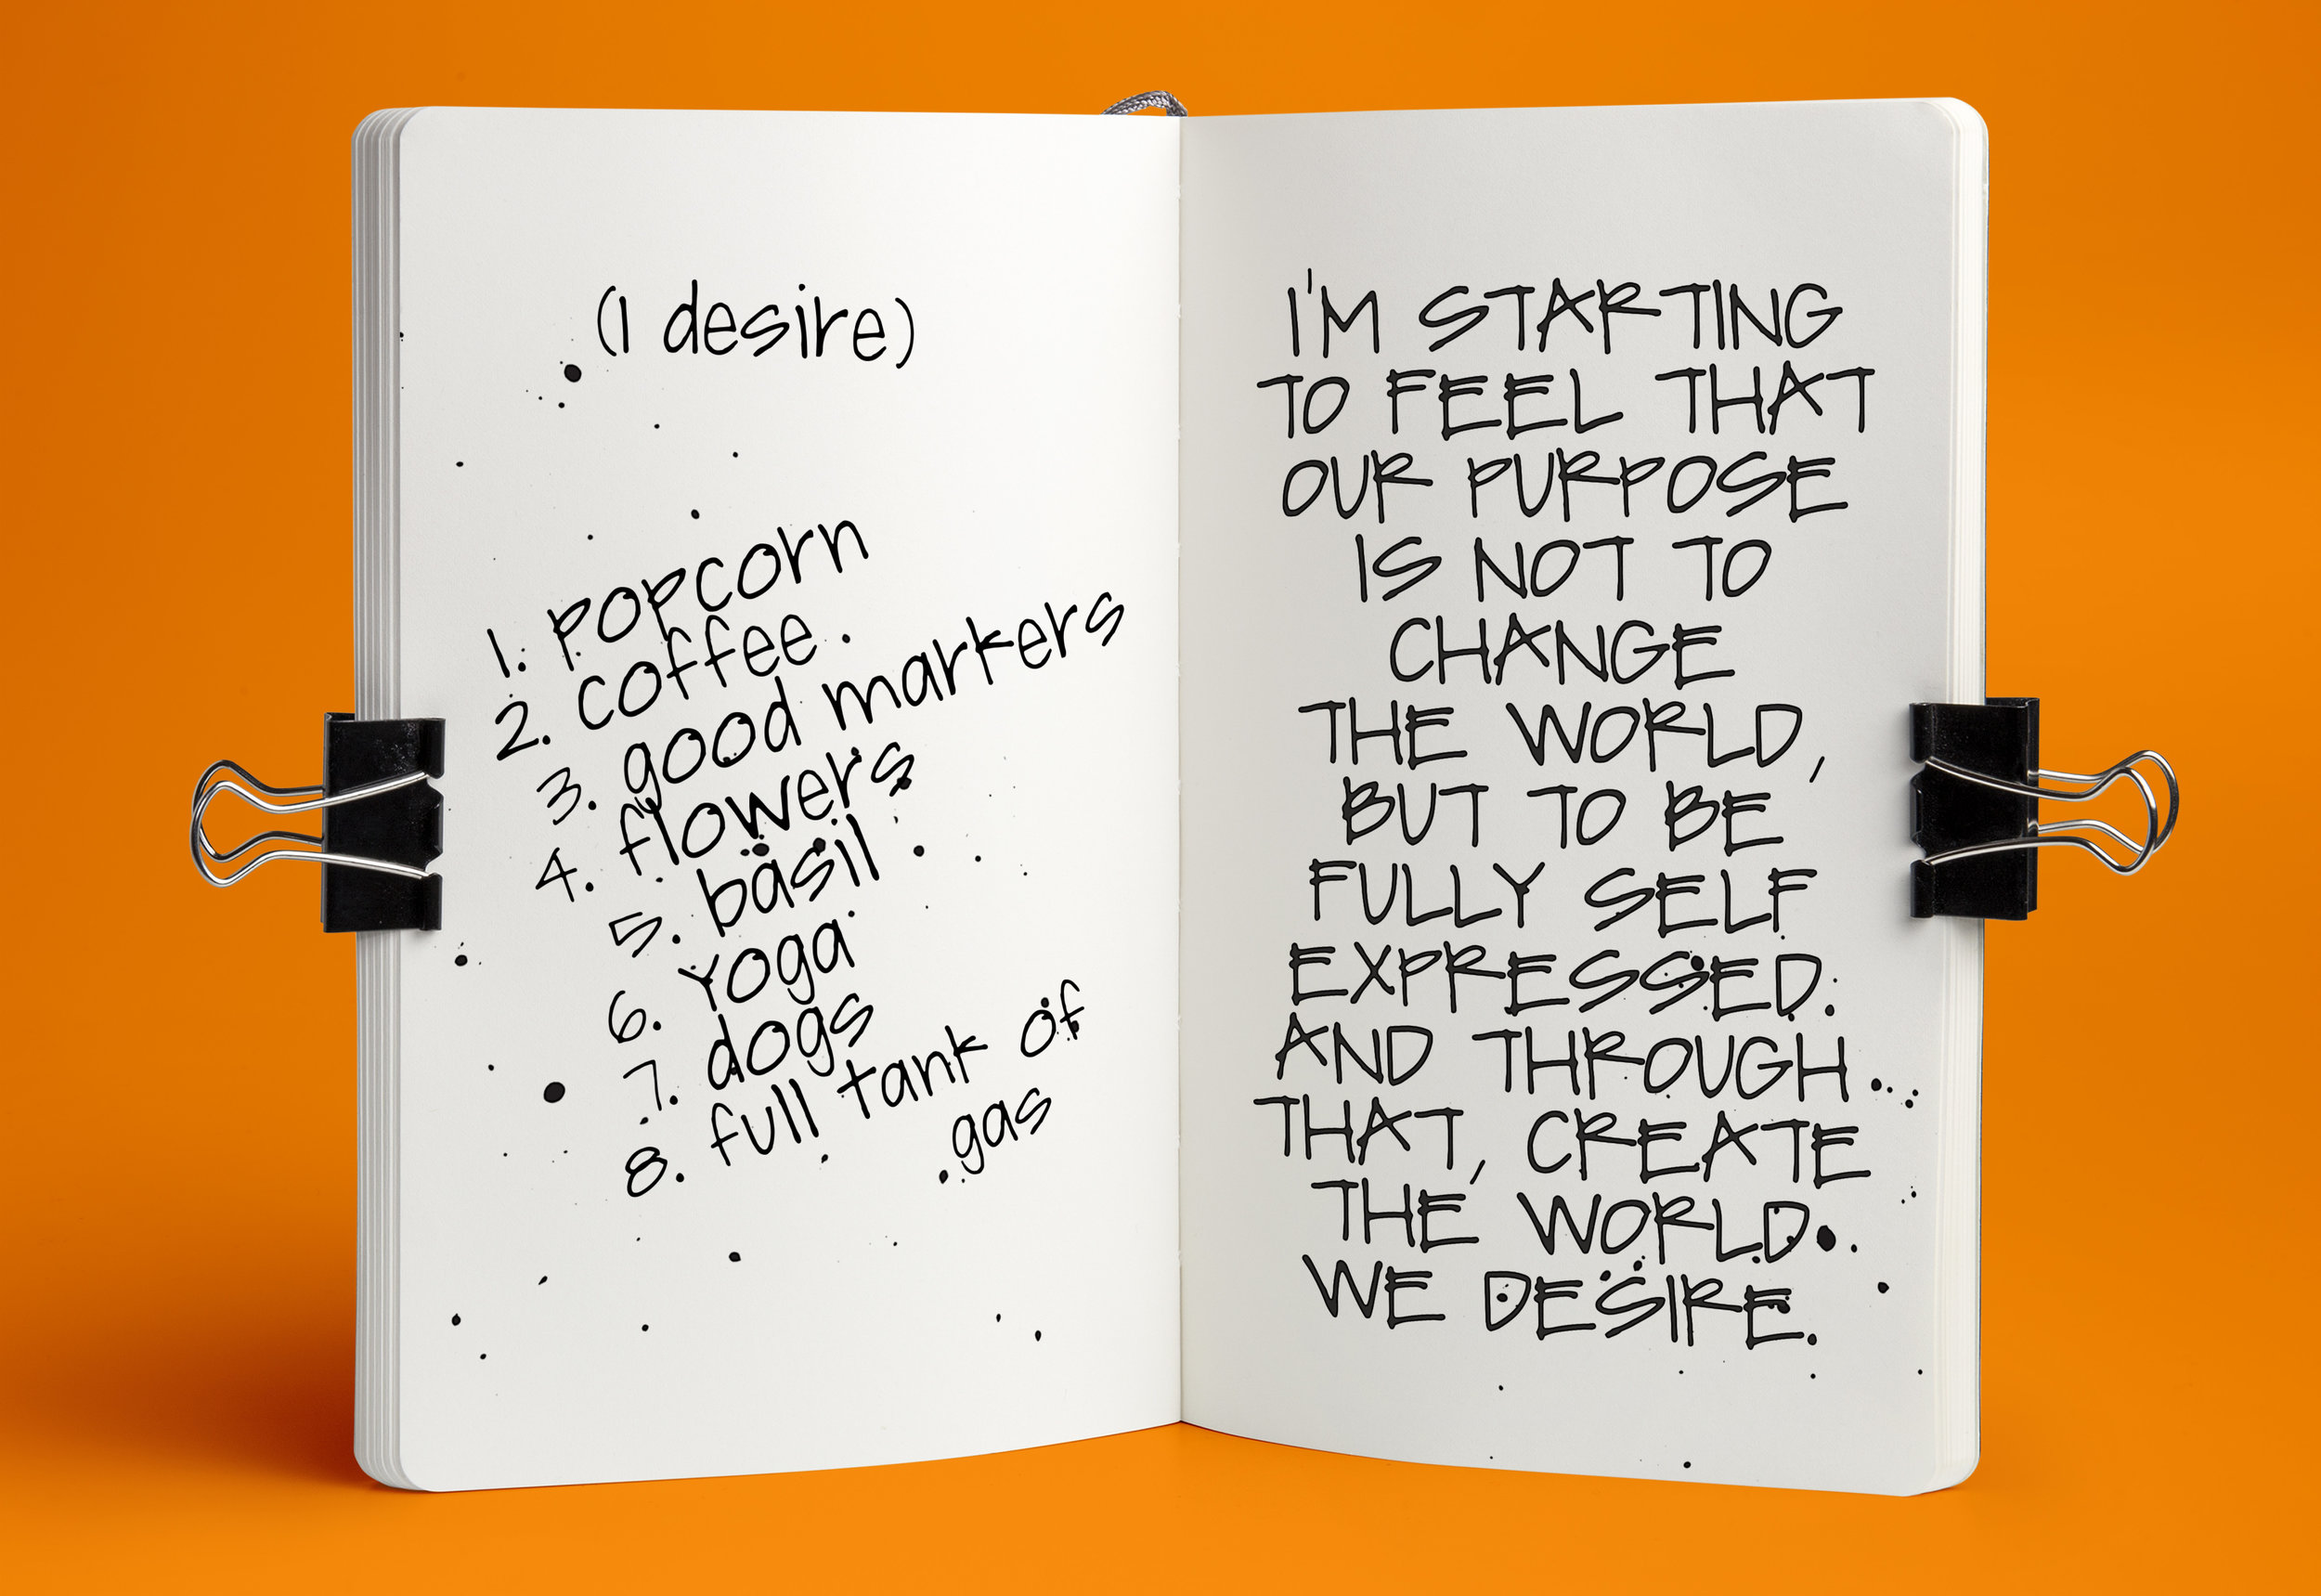 (I desire)
1. popcorn
2. coffee
3. good markers
4. flowers
5. basil
6. yoga
7. dogs
8. full tank of
gas
I'M STARTING
TO FEEL THAT
OUR PURPOSE
IS NOT TO
CHANGE
THE WORLD,
BUT TO BE
FULLY SELF
EXPRESSED.
AND THROUGH
THAT, CREATE
THE WORLD
WE DESIRE.